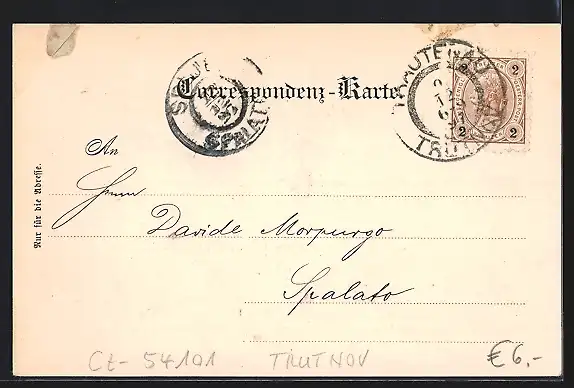 Correspondenz-Karte.
TRAUTENAU
TRUTNOV
SPALATO
2 2
2 2
An
Nur für die Adresse.
Herrn
Davide Morpurgo
Spalato
CZ-54101 TRUTNOV €6.-